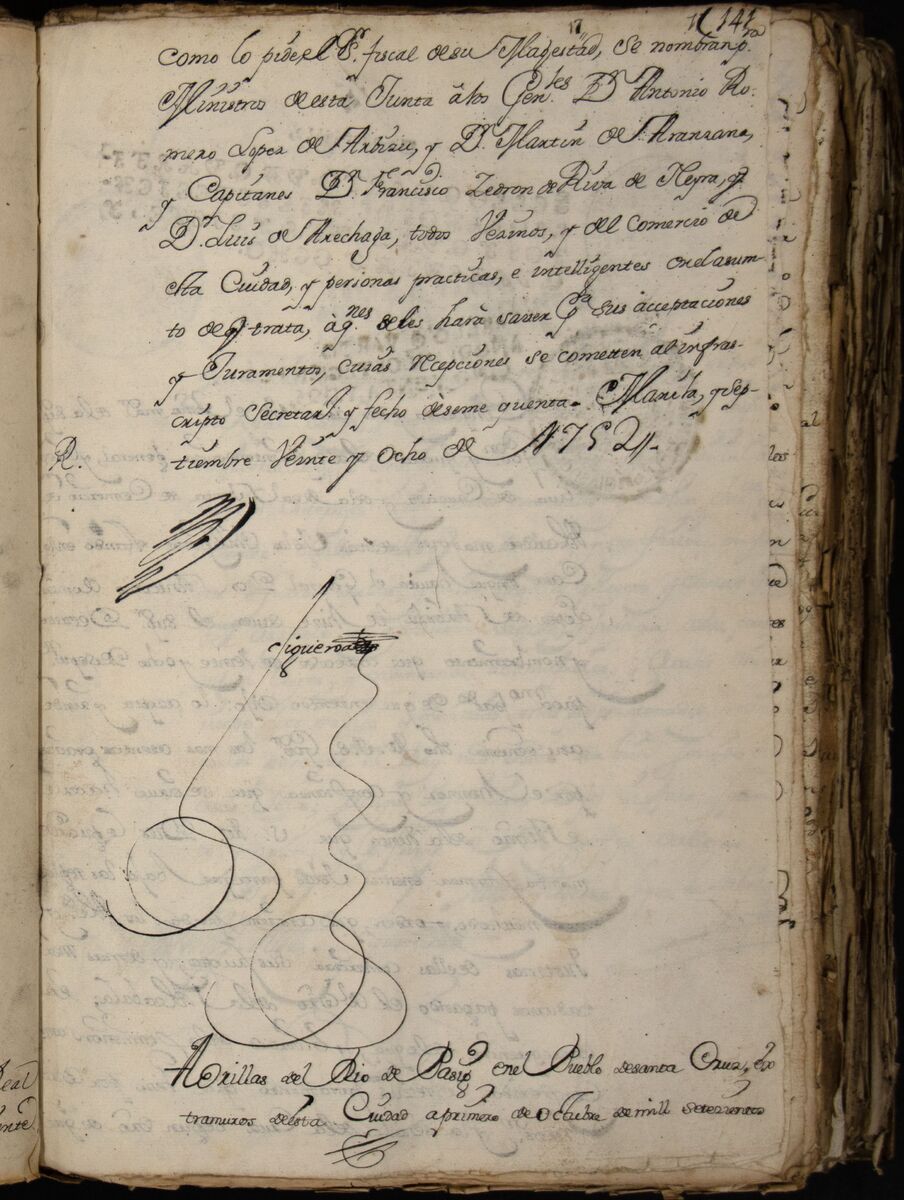 17 141
como lo pide, el Sr. fiscal de su Magestad, se nombran pra
Ministros de esta Junta â los Genles Dn Antonio Ro-
mero Lopez de Arbizu, y Dn Martin de Aranzana,
y Capitanes Dn Francisco Zedron de Riva de Neyra, y
Dn Luis de Arechaga, todos Vezinos, y del Comercio de
esta Ciudad, y personas practicas, e intelligentes en el asum-
to de q trata, à qnes se les harà saver pa sus acceptaciones
y Juramentos, cuias recepciones se cometten al infras-
cripto Secretar. y fecho dèseme quenta. Manila, y sep-
R. tiembre Veinte y ocho de 1752
Figueroa
A Orillas del Rio de Pasig en el Pueblo de santa Cruz, ex-
tramuros de esta Ciudad a primero de Octubre de mill setezientos